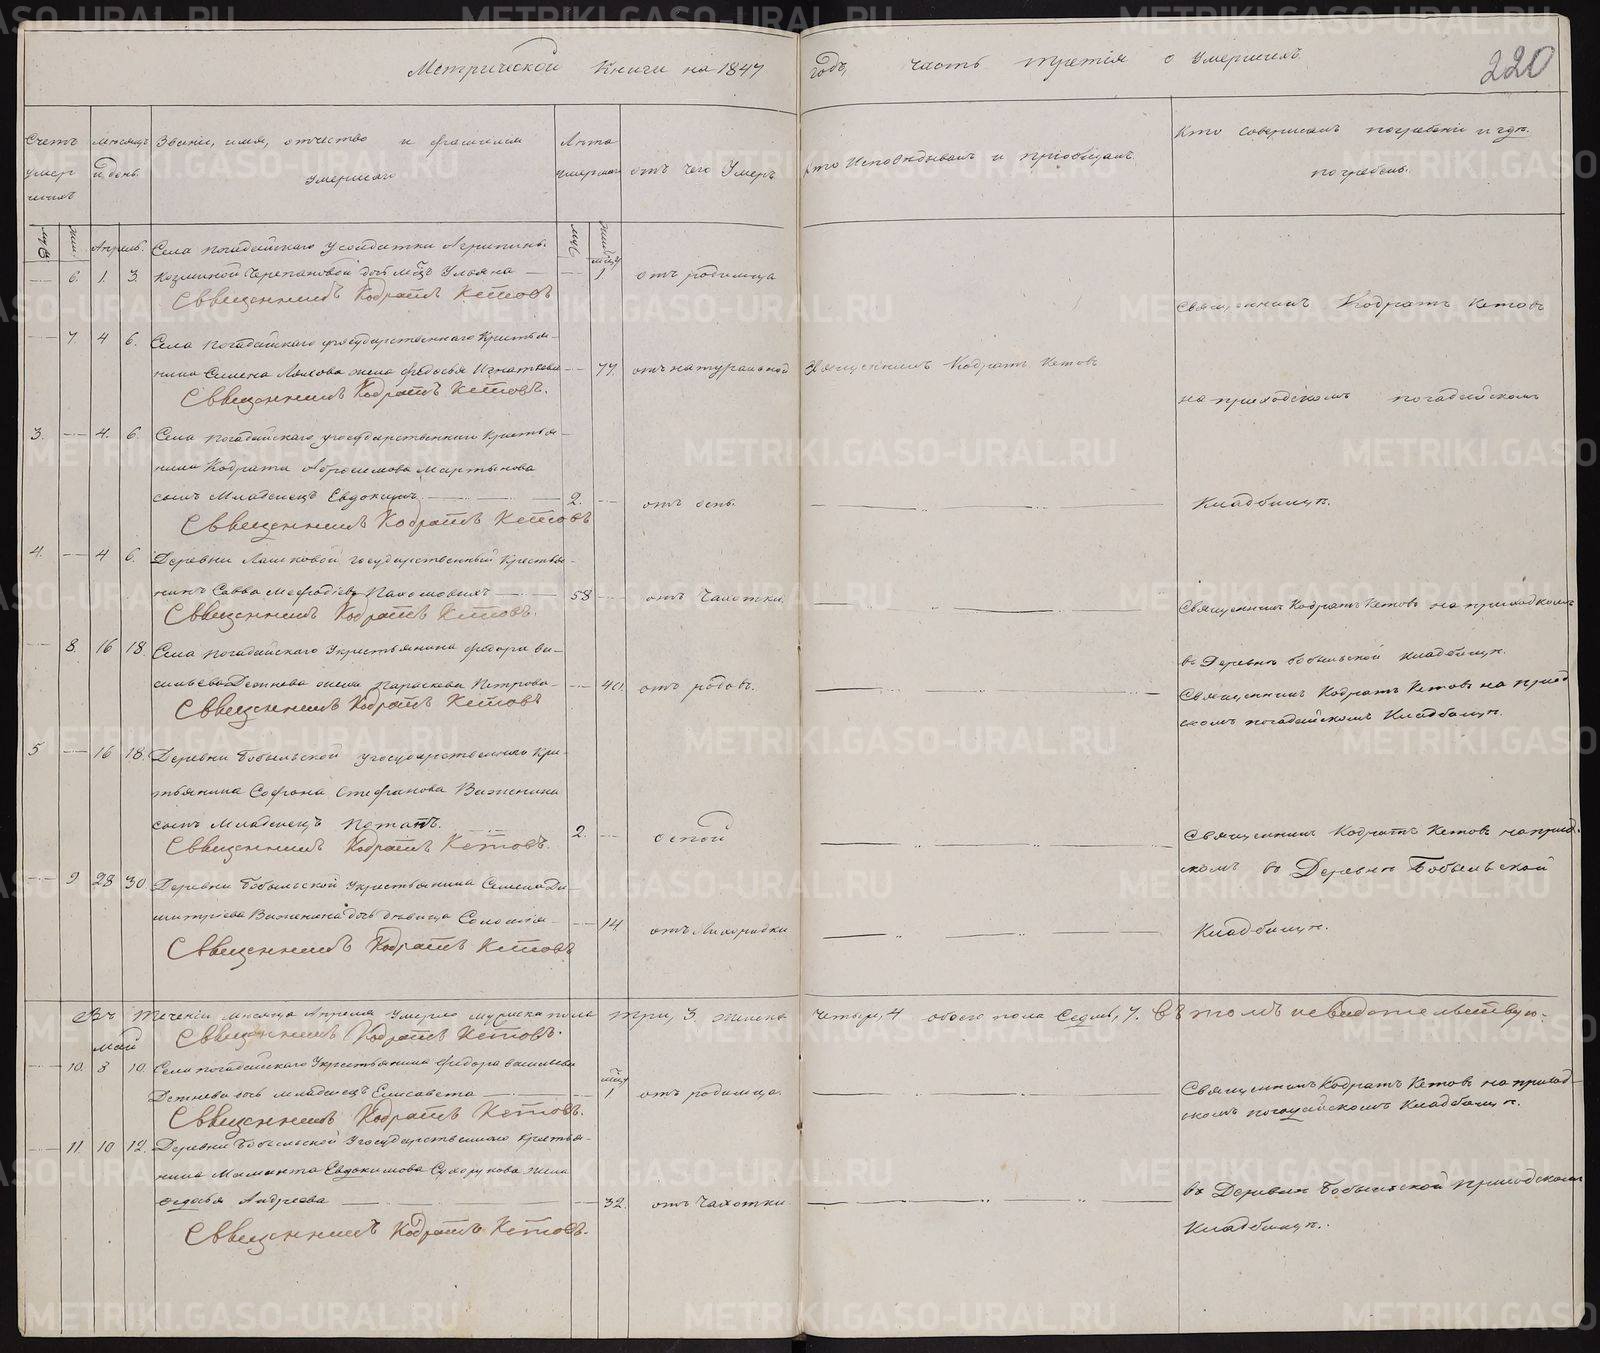 Метрической Книги на 1847 годъ, часть третія о умершихъ.
220
Счетъ умершихъ
Мѣсяцъ и день
Званіе, имя, отчество и фамилія умершаго.
Лѣта умершаго
отъ чего умеръ
кто исповѣдывалъ и пріобщалъ
Кто совершалъ погребеніе и гдѣ погребенъ.
муж. жен. Апрель. муж. жен.
Села погадайскаго
6. 1. 3. Козминой Черепановой дочь Ульяна — 1 отъ родимца
Священникъ Кодратъ Кетовъ
Священникъ Кодратъ Кетовъ
7. 4 6. Села Погадайскаго государственнаго Крестья-
нина Семена жена Федосья Игнатьева 77. отъ натуральной Священникъ Кодратъ Кетовъ
Священникъ Кодратъ Кетовъ.
на приходскомъ погадайскомъ
3. 4. 6. Села погадайскаго государственнаго Крестья-
нина Кодрата Мартынова
сынъ Младенецъ Евдокимъ 2. отъ оспы.
Кладбищѣ.
Священникъ Кодратъ Кетовъ
4. 4 6. Деревни государственный Крестья-
нинъ Савва Мефодіевъ Пахомовыхъ 58 отъ Чахотки
Священникъ Кодратъ Кетовъ.
Священникъ Кодратъ Кетовъ на приходскомъ
въ Деревнѣ Бобыльской кладбищѣ.
8. 16 18. Села погадайскаго Крестьянина Федора Ва-
сильева Детнева жена Параскева Петрова 40. отъ родовъ.
Священникъ Кодратъ Кетовъ
Священникъ Кодратъ Кетовъ на приход-
скомъ погадайскомъ Кладбищѣ.
5 16 18. Деревни Бобыльской государственнаго Кре-
стьянина Софона Стефанова Важенина
сынъ Младенецъ 2. оспой
Священникъ Кодратъ Кетовъ.
Священникъ Кодратъ Кетовъ на приход-
скомъ въ Деревнѣ Бобыльской
Кладбищѣ.
9 28 30 Деревни Бобыльской Крестьянина Семена Ди-
митріева Важенина дочь дѣвица Соломія 14 отъ Лихорадки
Священникъ Кодратъ Кетовъ
Въ теченіи мѣсяца Апреля умерло мужеска пола три, 3. женска четыре, 4 обоего пола Седмь, 7. Въ томъ свидетельствую.
Священникъ Кодратъ Кетовъ.
Май
10. 8 10. Села погадайскаго Крестьянина Федора Васильева
Детнева дочь младенецъ Елисавета 1 отъ родимца.
Священникъ Кодратъ Кетовъ.
Священникъ Кодратъ Кетовъ на приход-
скомъ погадайскомъ Кладбищѣ.
11. 10 12. Деревни Бобыльской государственнаго Крестья-
нина Маманта Евдокимова Сухорукова жена
Федосья Андреева 32. отъ Чахотки
Священникъ Кодратъ Кетовъ.
въ Деревни Бобыльской приходскомъ
Кладбищѣ.
METRIKI.GASO-URAL.RU